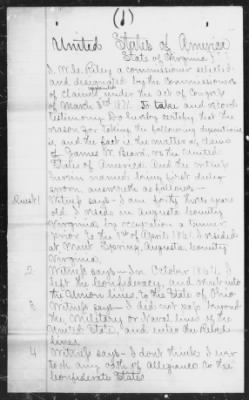 (1)
United States of America
State of Virginia
I, W. G. Riley a commissioner selected
and designated by the Commissioners
of claims under the act of Congress
of March 3rd 1871. To take and record
testimony Do hereby certify that the
reason for taking the following depositions
is, and the fact is the matter of claim
of James W. Beard, vs the United
States of America. And the witness
herein named being first duly
sworn answereth as follows—
Quest 1 Witness says— I am forty three years
old I reside in Augusta County
Virginia by occupation a
Prior to the 1st of April 1861 I resided
at Mint Spring, Augusta County
Virginia.
2 Witness says— In October 1864 I
left the Confederacy, and went into
the Union lines, to the State of Ohio
3 Witness says— I did not pass beyond
the Military or Naval lines of the
United States, and enter the Rebel
lines.
4 Witness says— I dont think I ever
took any oath of Allegiance to the
Confederate States